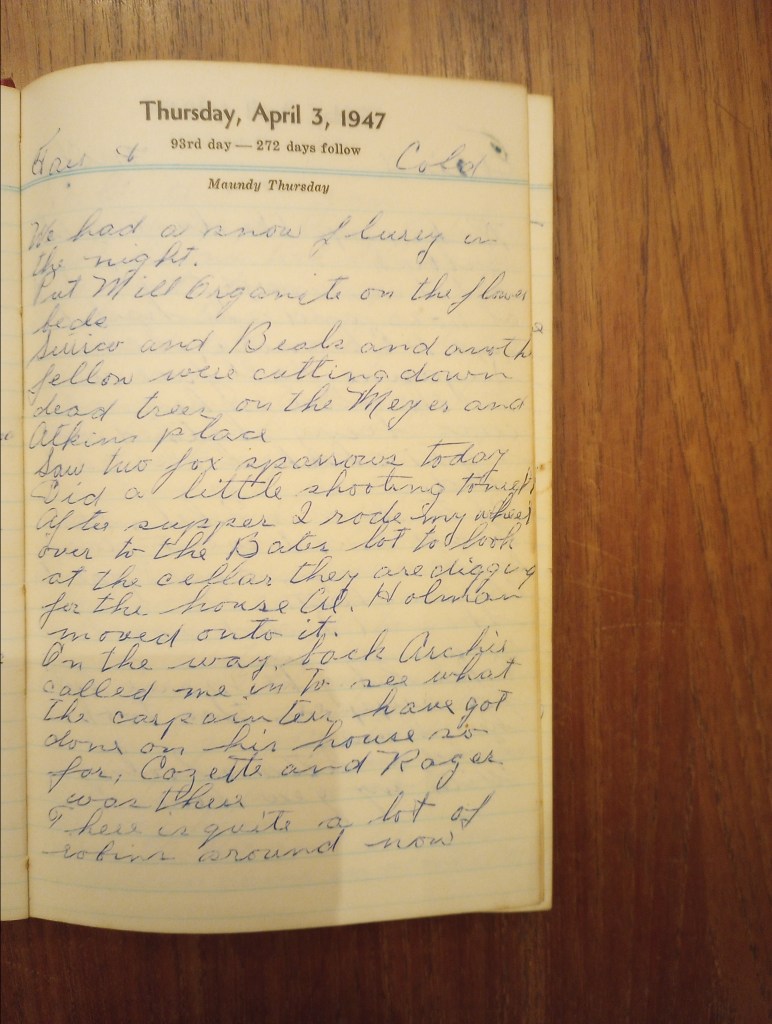 Thursday, April 3, 1947
93rd day — 272 days follow
Fair & Cold
Maundy Thursday
We had a snow flurry in
the night.
Put Mill Organite on the flower
beds
and Beals and anoth
fellow were cutting down
dead trees on the Meyer and
Atkins place
Saw two fox sparrows today
Did a little shooting tonight
After supper I rode my wheel
over to the Bates lot to look
at the cellar they are digging
for the house Al. Holman
moved onto it.
On the way back Archie
called me in to see what
the carpainters have got
done on his house so
far, Cozette and Roger
was there
There is quite a lot of
robins around now